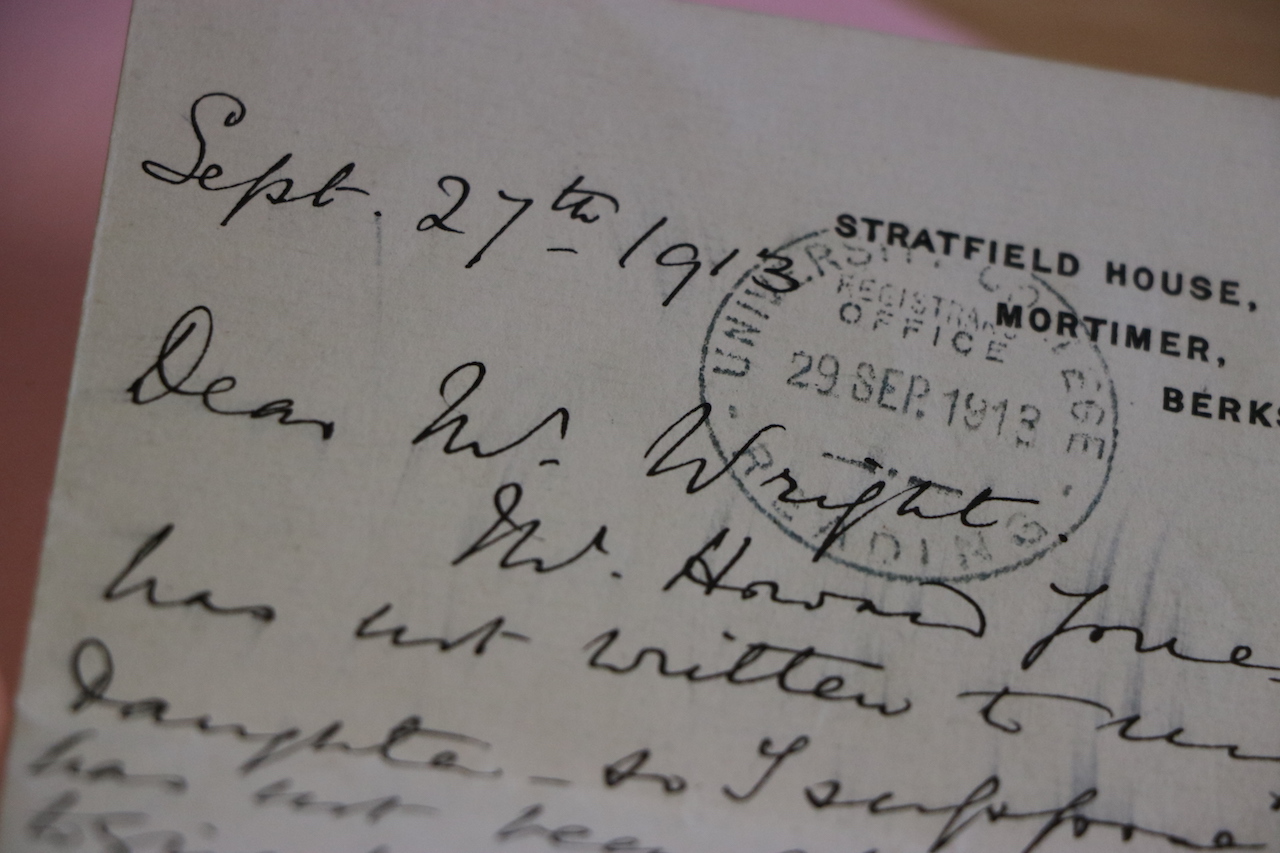 Sept. 27th 1913
STRATFIELD HOUSE,
MORTIMER,
BERKS
UNIVERSITY COLLEGE
REGISTRAR'S
OFFICE
29 SEP. 1913
READING
Dear Mr. Wright.
Mr. Howard Jones
has not written to my
Daughter - so I suppose
has not been